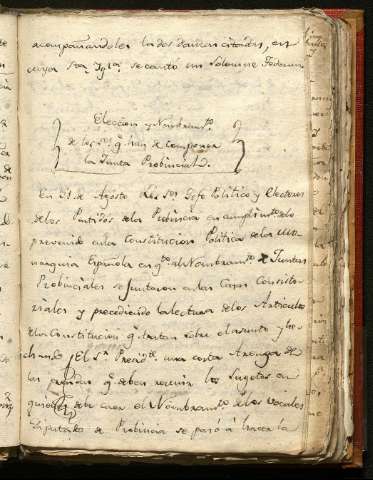 acompañandoles las dos damas citadas, en
cuya Sta. Iglª. se cantó un Solemne Tedeum
Eleccion y Nombramto.
de los Sres. q. han de componer
la Junta Probincial.
En 31 de Agosto los Sres. Gefe Politico y Electores
de los Partidos de la Probincia en cumplimto. de lo
prevenido en la Constitucion Politica de la Mo-
narquia Española en qto. al Nombramto. de Juntas
Probinciales se juntaron en las Casas Consisto-
riales y precediendo la lectura de los Articulos
de la Constitucion q. tratan sobre el asunto y he-
chando el Sr. Presidte. una corta Arenga de
las prendas q. deben reunir los Sugetos en
quienes debe caer el Nombramto. de los Vocales
Diputados de Probincia se pasó á hacer la